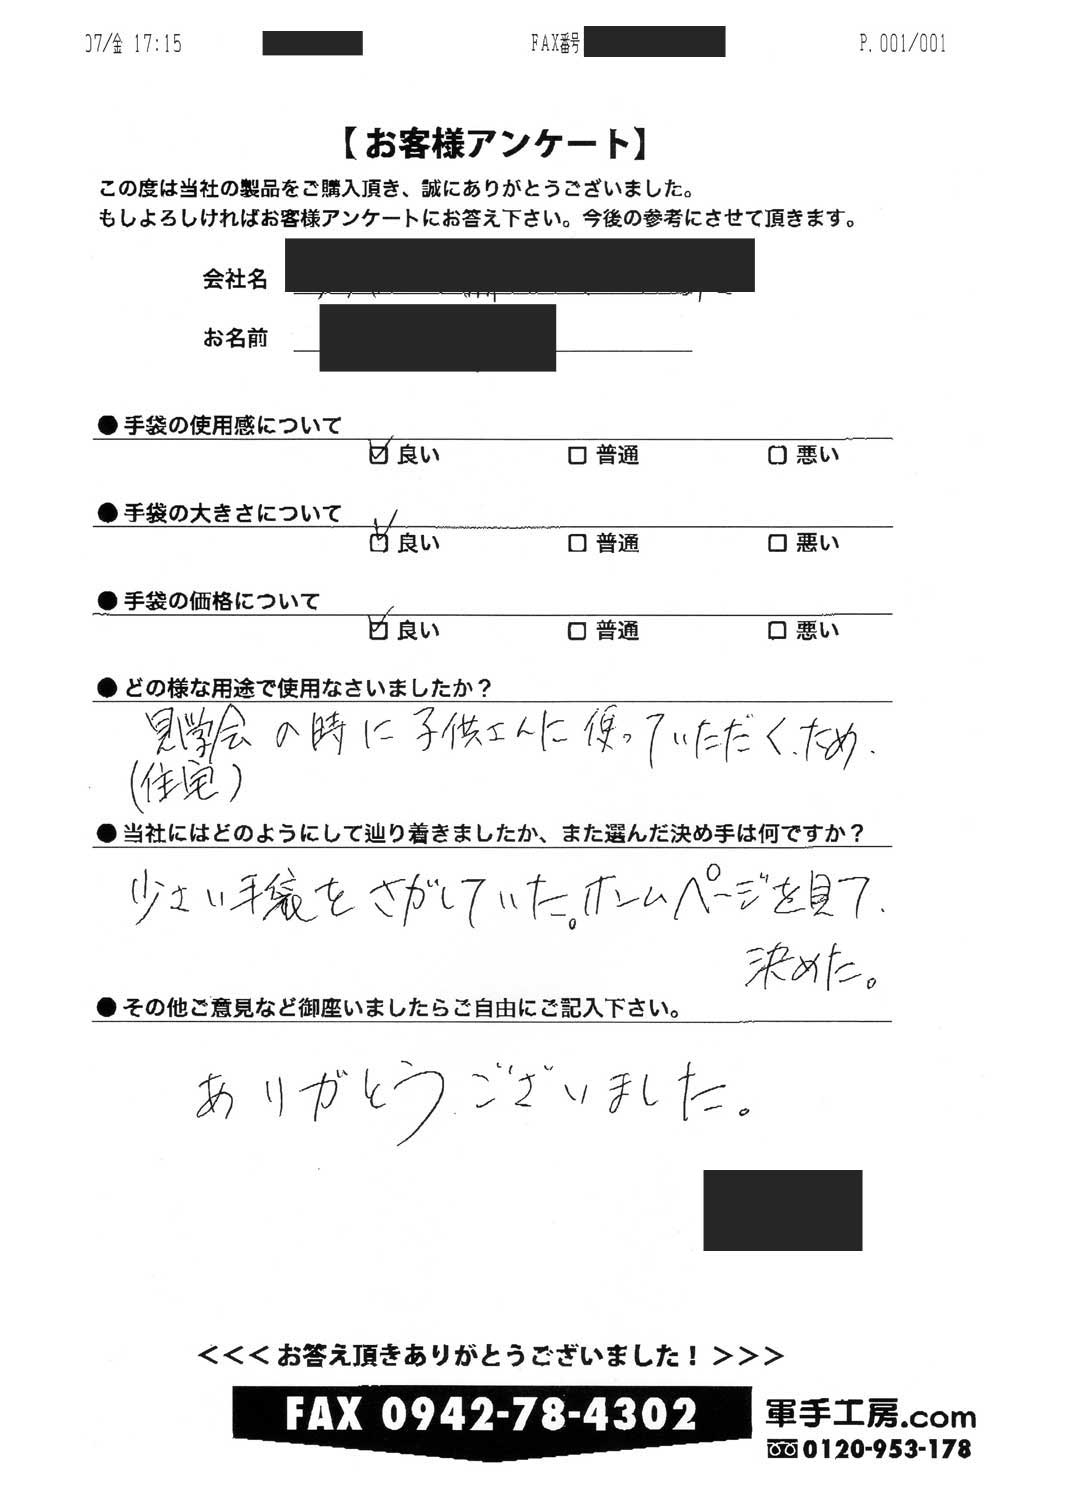 07/金 17:15 FAX番号 P.001/001
【お客様アンケート】
この度は当社の製品をご購入頂き、誠にありがとうございました。
もしよろしければお客様アンケートにお答え下さい。今後の参考にさせて頂きます。
会社名
お名前
●手袋の使用感について
☑良い □普通 □悪い
●手袋の大きさについて
☑良い □普通 □悪い
●手袋の価格について
☑良い □普通 □悪い
●どの様な用途で使用なさいましたか？
見学会の時に子供さんに使っていただく、ため.
(住宅)
●当社にはどのようにして辿り着きましたか、また選んだ決め手は何ですか？
少さい手袋をさがしていた。ホームページを見て、
決めた。
●その他ご意見など御座いましたらご自由にご記入下さい。
ありがとうございました。
<<<お答え頂きありがとうございました！>>>
FAX 0942-78-4302
軍手工房.com
0120-953-178